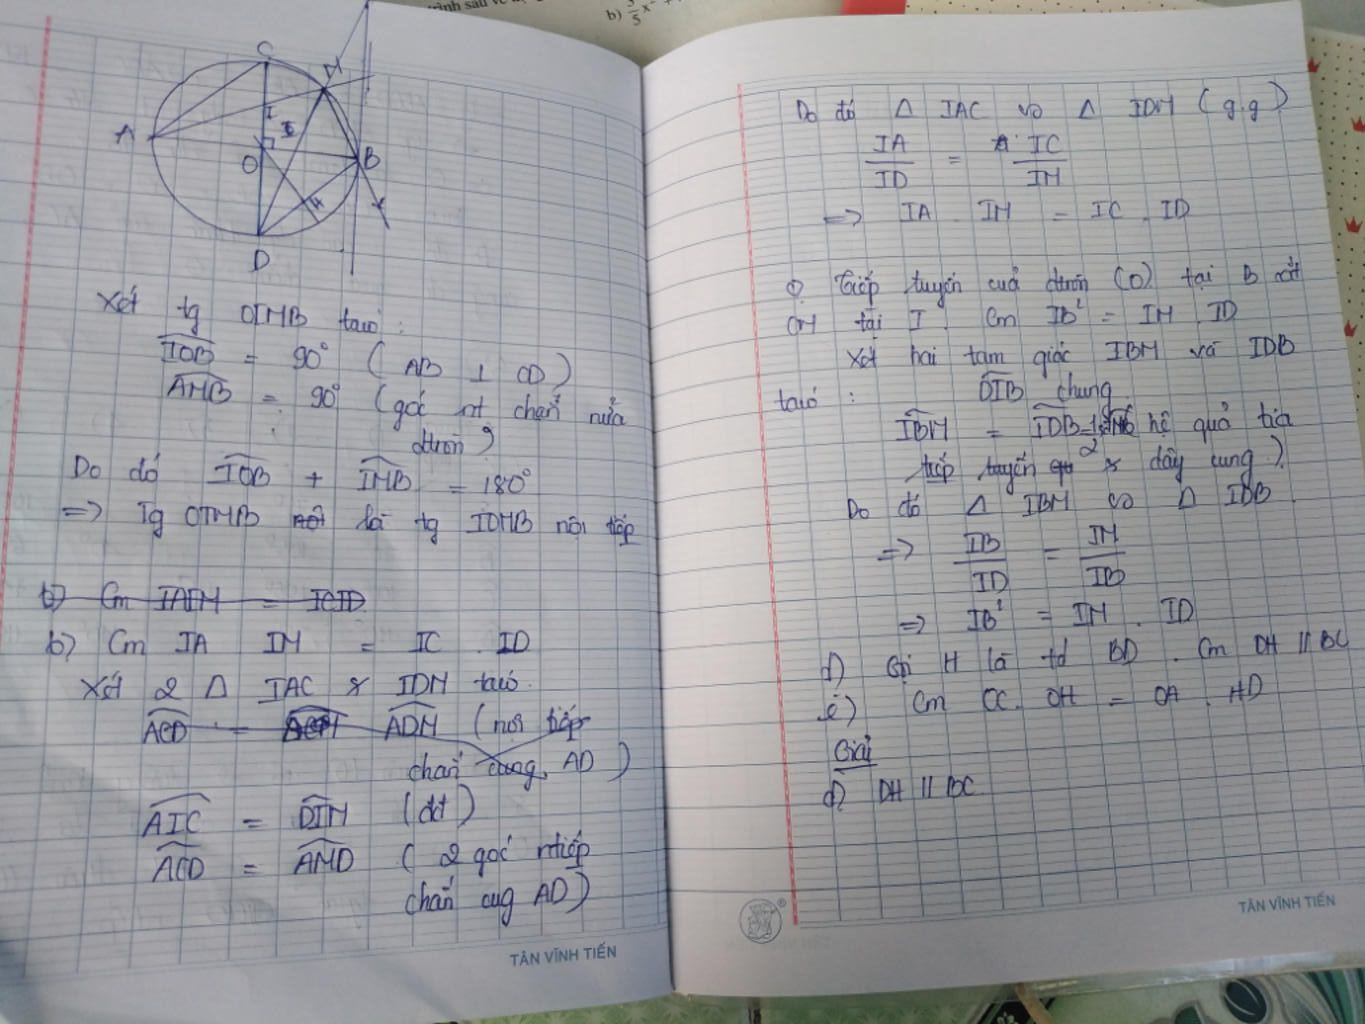 b) 3/5 x²
C
M
A
I
O
B
H
D
Xét tg OIMB taco :
IOB = 90° ( AB ⊥ CD )
AMB = 90° ( góc nt chắn nửa
đtròn )
Do đó IOB + IMB = 180°
=> Tg OIMB là tg IOMB nội tiếp
b) Cm IAIM = ICID
b) Cm IA IM = IC . ID
Xét 2 Δ IAC & IDM taco.
ACD = ADM ( nội tiếp
chắn cung AD )
AIC = DIM (đđ)
ACD = AMD ( 2 góc ntiếp
chắn cug AD )
TÂN VĨNH TIẾN
Do đó Δ IAC ∽ Δ IDM ( g.g )
IA / ID = IC / IM
=> IA . IM = IC . ID
Tiếp tuyến cuả đtròn (O) tại B cắt
DM tại I . Cm IB² = IM . ID
Xét hai tam giác IBM và IDB
taco : DIB chung
IBM = IDB hệ quả tia
tiếp tuyến & dây cung ).
Do đó Δ IBM ∽ Δ IDB
=> IB / ID = IM / IB
=> IB² = IM . ID
d) Gọi H là tđ BD . Cm OH // BC
e) Cm OC . OH = OA . HD
Giải
d) OH // BC
TÂN VĨNH TIẾN